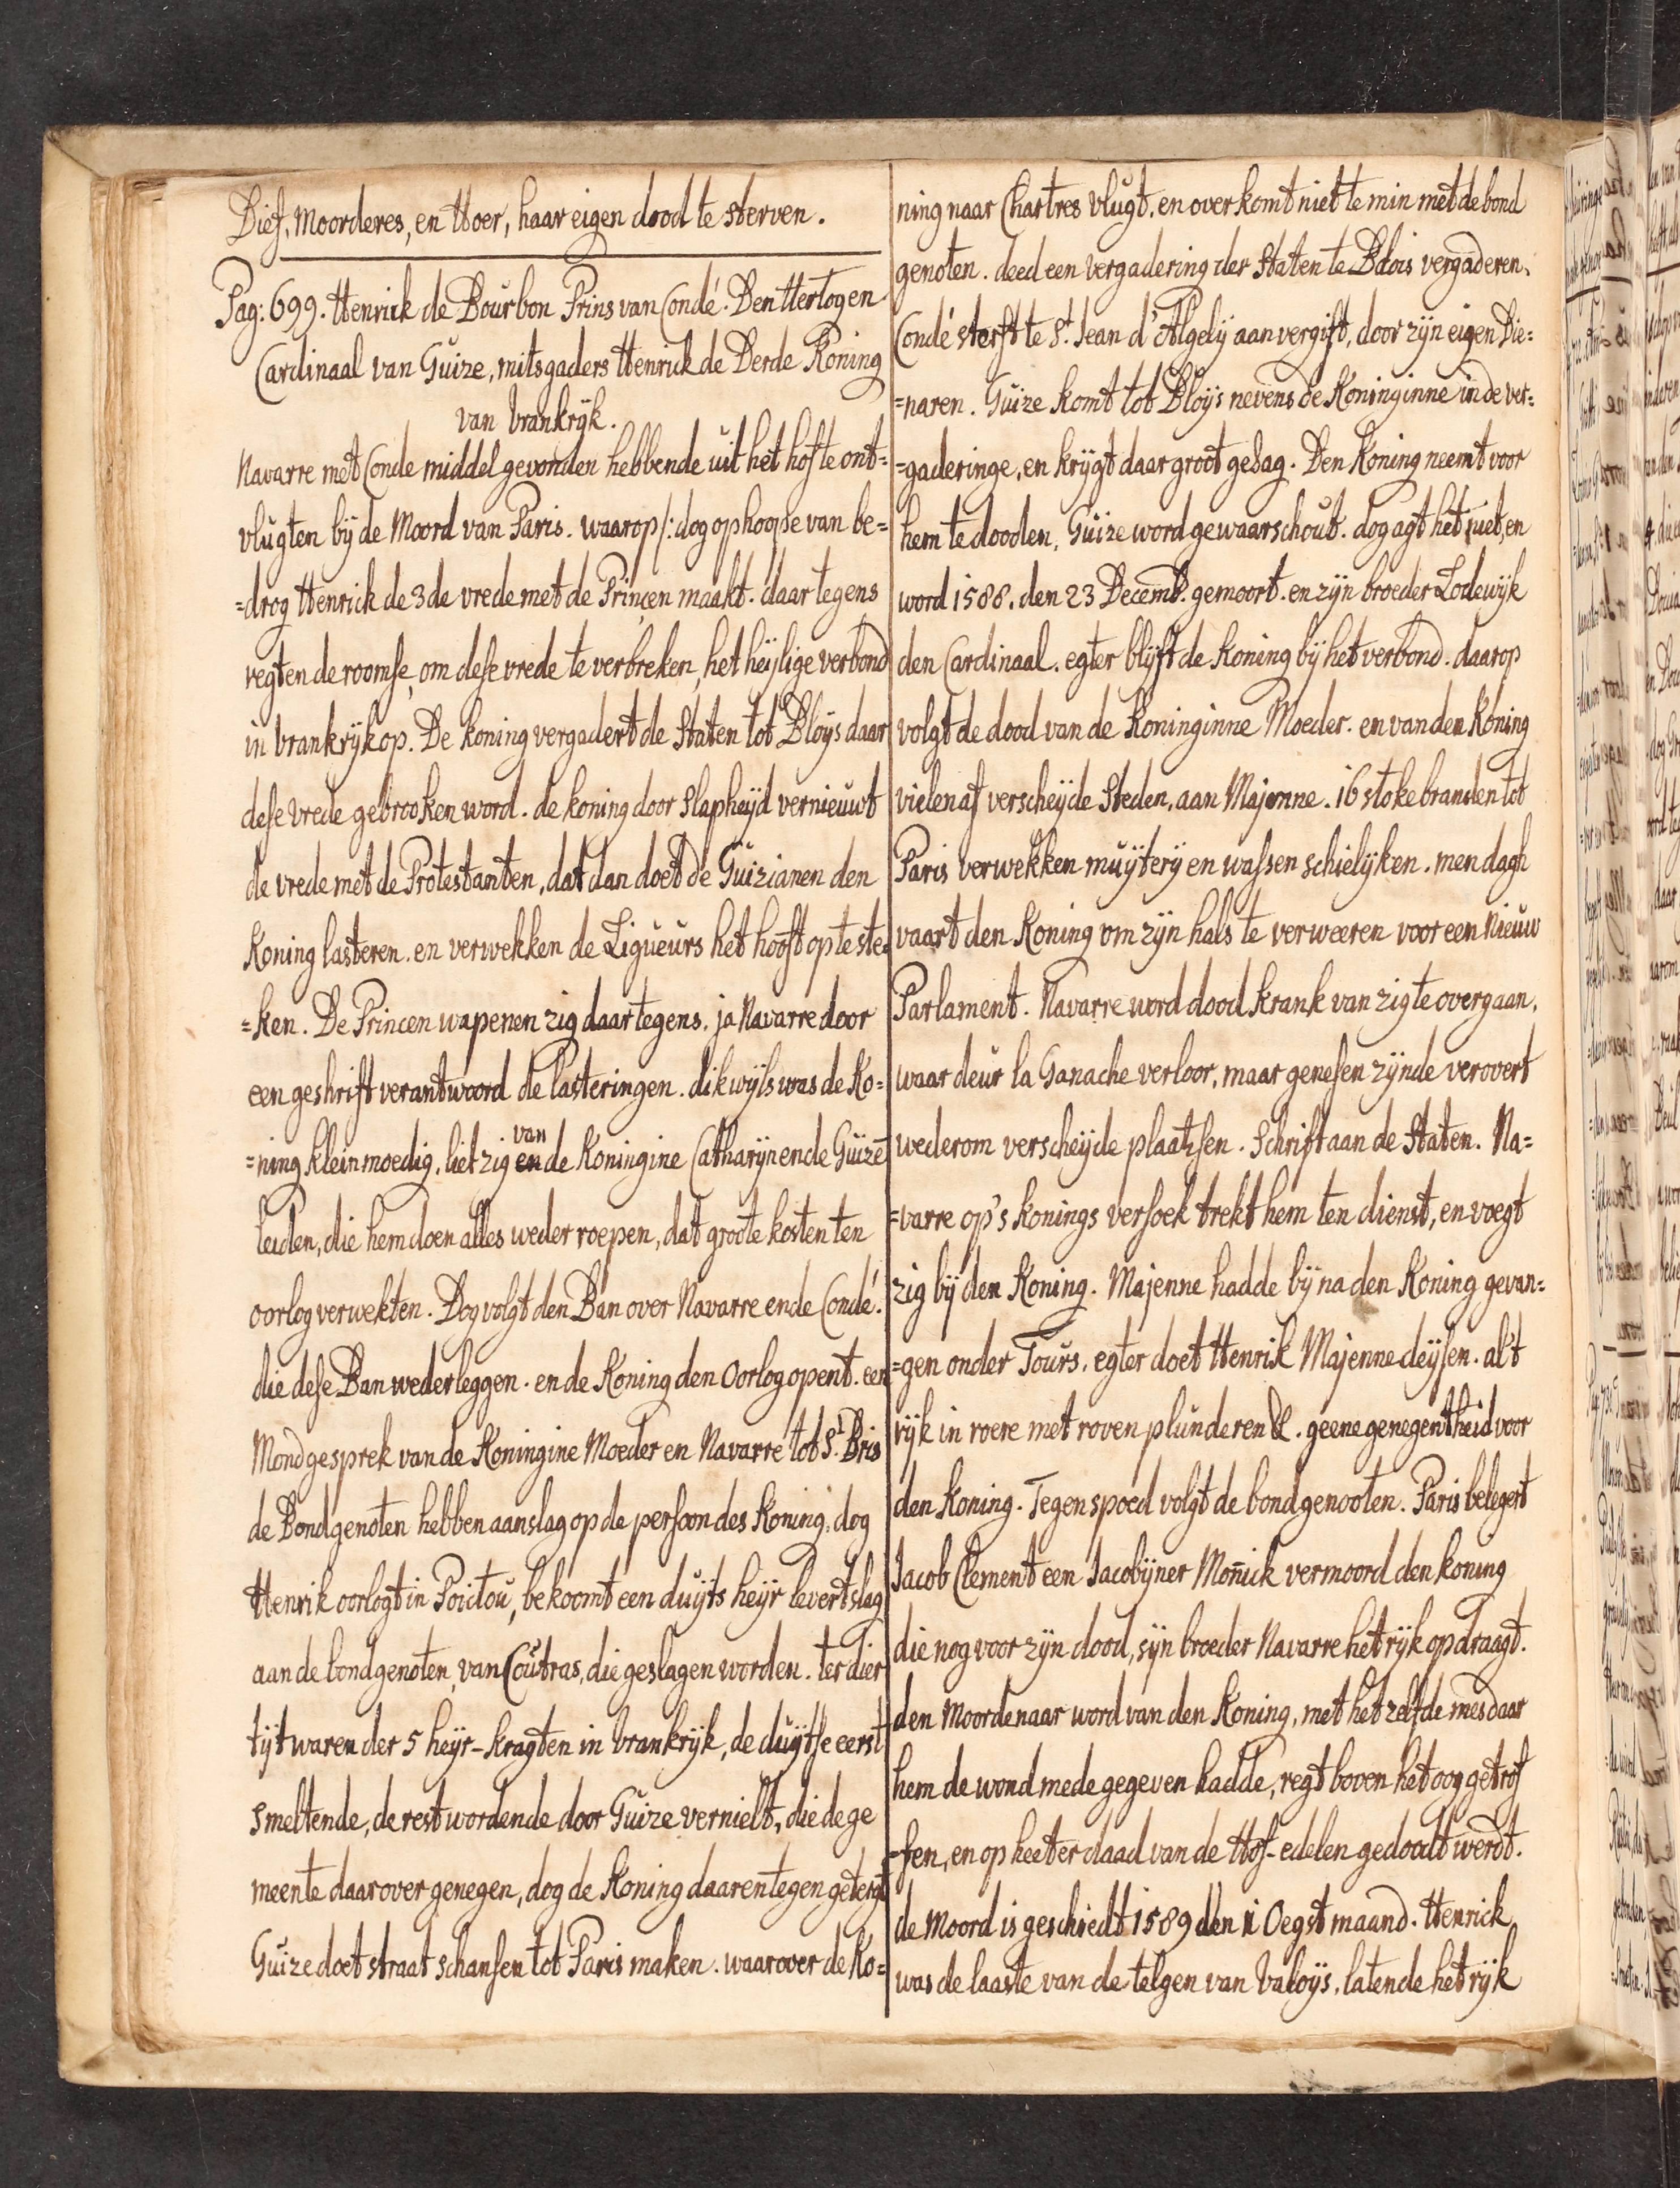 Dief, Moorderes, en Hoer, haar eigen dood te sterven.
Pag: 699. Henrick de Bourbon Prins van Condé. Den Hertog en
Cardinaal van Guize, mitsgaders Henrick de Derde Koning
van Vrankryk.
Navarre met Conde middel gevonden hebbende uit het hof te ont=
vlugten bij de Moord van Paris. waarop /: dog op hoope van be=
=drog Henrick de 3de vrede met de Princen maakt. daar tegens
regten de roomse, om dese vrede te verbreken, het heijlige verbond
in Vrankryk op. De koning vergadert de Staten tot Bloijs daar
dese vrede gebrooken word. de koning door slapheijd vernieuwt
de vrede met de Protestanten, dat dan doet de Guizianen den
Koning lasteren. en verwekken de Ligueurs het hooft op te ste=
=ken. De Princen wapenen zig daartegens. ja Navarre door
een geshrift verantwoord de lasteringen. dikwijls was de Ko=
=ning kleinmoedig. liet zig van de Koningine Catharijn ende Guize
leiden, die hem doen alles weder roepen, dat groote kosten ten
oorlog verwekten. Dog volgt den Ban over Navarre ende Condé.
die dese Ban wederleggen. en de Koning den Oorlog opent. een
Mondgesprek van de Koningine Moeder en Navarre tot St. Bris
de Bondgenoten hebben aanslag op de persoon des Koning. dog
Henrik oorlogt in Poictou, bekoomt een duyts heyr levert slag
aan de bondgenoten, van Coutras, die geslagen worden. ter dier
tijt waren der 5 heyr-kragten in Vrankryk, de duytse eerst
smeltende, de rest wordende door Guize vernielt, die de ge
meente daar over genegen, dog de Koning daarentegen getergt
Guize doet straat schansen tot Paris maken. waar over de Ko=
ning naar Chartres vlugt. en over komt niet te min met de bond
genoten. deed een vergadering der Staten te Blois vergaderen.
Condé sterft te St. Jean d'Algely aan vergift, door zyn eigen Die=
=naren. Guize komt tot Bloys nevens de Koninginne in de ver=
=gaderinge, en krygt daar groot gesag. Den Koning neemt voor
hem te dooden, Guize word gewaarschout. dog agt het niet, en
word 1588. den 23 Decemb. gemoort. en zyn broeder Lodewyk
den Cardinaal. egter blyft de Koning bij het verbond. daarop
volgt de dood van de Koninginne Moeder. en van den Koning
vielen af verscheyde Steden, aan Majenne. 16 stokebranden tot
Paris verwekken muyterij en wassen schielyken. men dagh
vaart den Koning om zyn hals te verweeren voor een Nieuw
Parlament. Navarre word dood krank van zig te overgaan,
waar deur la Ganache verloor, maar genesen zynde verovert
wederom verscheyde plaatzsen. Schrift aan de Staten. Na=
=varre op's Konings versoek trekt hem ten dienst, en voegt
zig bij den Koning. Majenne hadde by na den Koning gevan=
=gen onder Tours. egter doet Henrik Majenne deysen. al't
ryk in roere met roven plunderen &. geene genegentheid voor
den Koning. Tegenspoed volgt de bondgenooten. Paris belegert
Jacob Clement een Jacobijner Mon̄ick vermoord den koning
die nog voor zyn dood, syn broeder Navarre het ryk opdraagt.
den Moordenaar word van den Koning, met het zelfde mes daar
hem de wond mede gegeven hadde, regt boven het oog getrof
=fen, en op heeter daad van de Hof-edelen gedoodt werdt.
de Moord is geschiedt 1589 den 1 Oegstmaand. Henrick
was de laaste van de telgen van Valoijs, latende het ryk